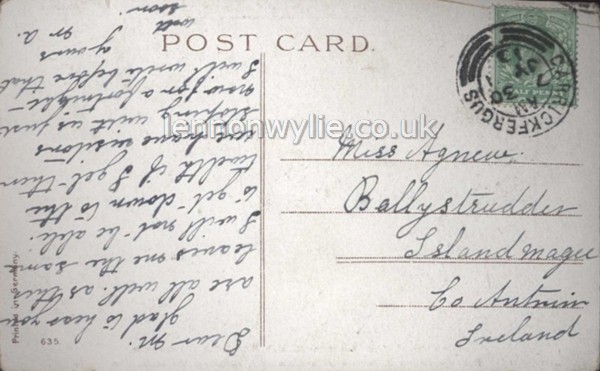 POST CARD.
CARRICKFERGUS
HALF PENNY
lennonwylie.co.uk
Miss Agnew
Ballystrudder
Islandmagee
Co Antrim
Ireland
Dear M.
glad to hear you
are all well. as this
leaves me the same
I will not be able
to get down to the
twelth if I get then
we have visitors
stoping with us just
now for a fortnight
I will write before that
yours
M A.
soon.
Printed in Germany.
635.